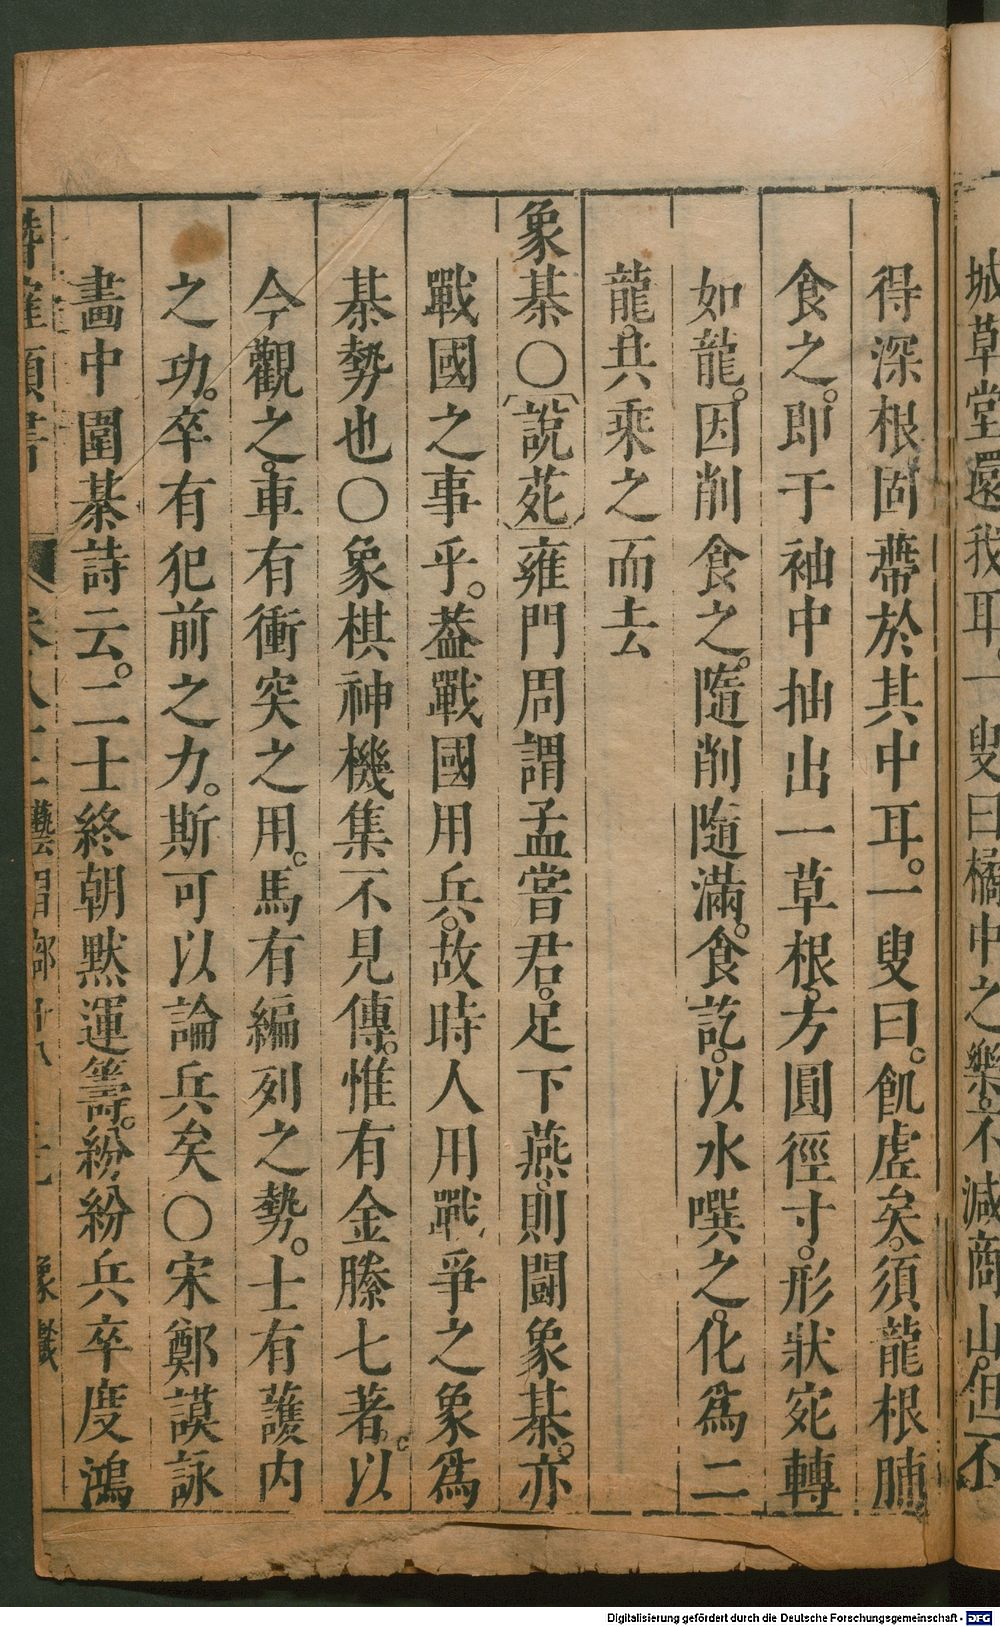 城草堂還我耳。一叟曰橘中之樂。不減商山。但不
得深根固蔕於其中耳。一叟曰。飢虛矣。須龍根脯
食之。即于袖中抽出一草根。方圓徑寸。形狀宛轉
如龍。因削食之。隨削隨滿。食訖。以水噀之。化爲二
龍。共乘之而去
象棊〇〔說苑〕雍門周謂孟嘗君。足下燕。則鬪象棊。亦
戰國之事乎。葢戰國用兵。故時人用戰爭之象爲
棊勢也〇象棋神機集不見傳。惟有金縢七著。以
今觀之。車有衝突之用。馬有編列之勢。士有護内
之功。卒有犯前之力。斯可以論兵矣〇宋鄭謨詠
畫中圍棊詩云。二士終朝默運籌。紛紛兵卒度鴻
類書 卷八十二 藝習部廿八 象戲
Digitalisierung gefördert durch die Deutsche Forschungsgemeinschaft - DFG